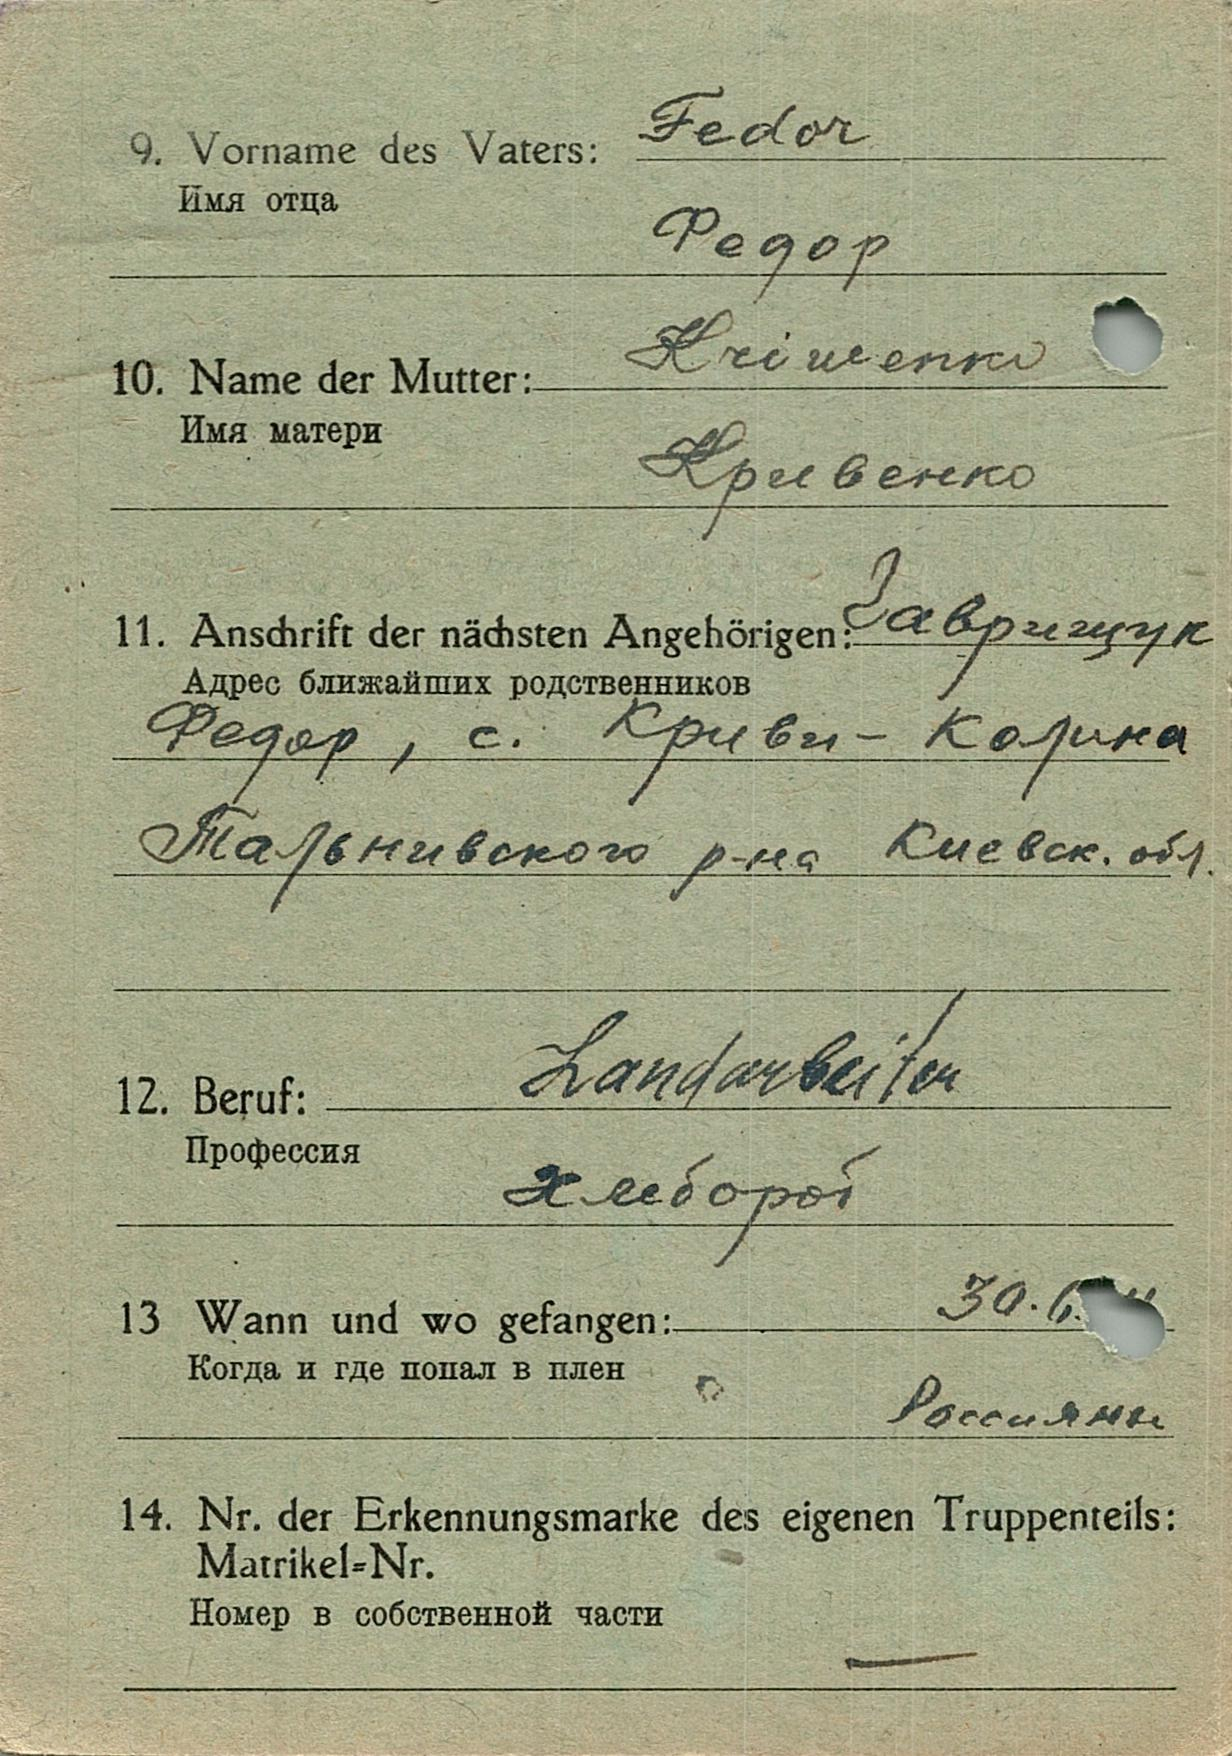 9. Vorname des Vaters: Fedor
Имя отца
Федор
10. Name der Mutter: Kriwenko
Имя матери
Кривенко
11. Anschrift der nächsten Angehörigen: Гаврищук
Адрес ближайших родственников
Федор, с. Криви-Колина
Тальнивского р-на Киевск. обл.
12. Beruf: Landarbeiter
Профессия
хлебороб
13 Wann und wo gefangen: 30.
Когда и где попал в плен
14. Nr. der Erkennungsmarke des eigenen Truppenteils:
Matrikel=Nr.
Номер в собственной части
—